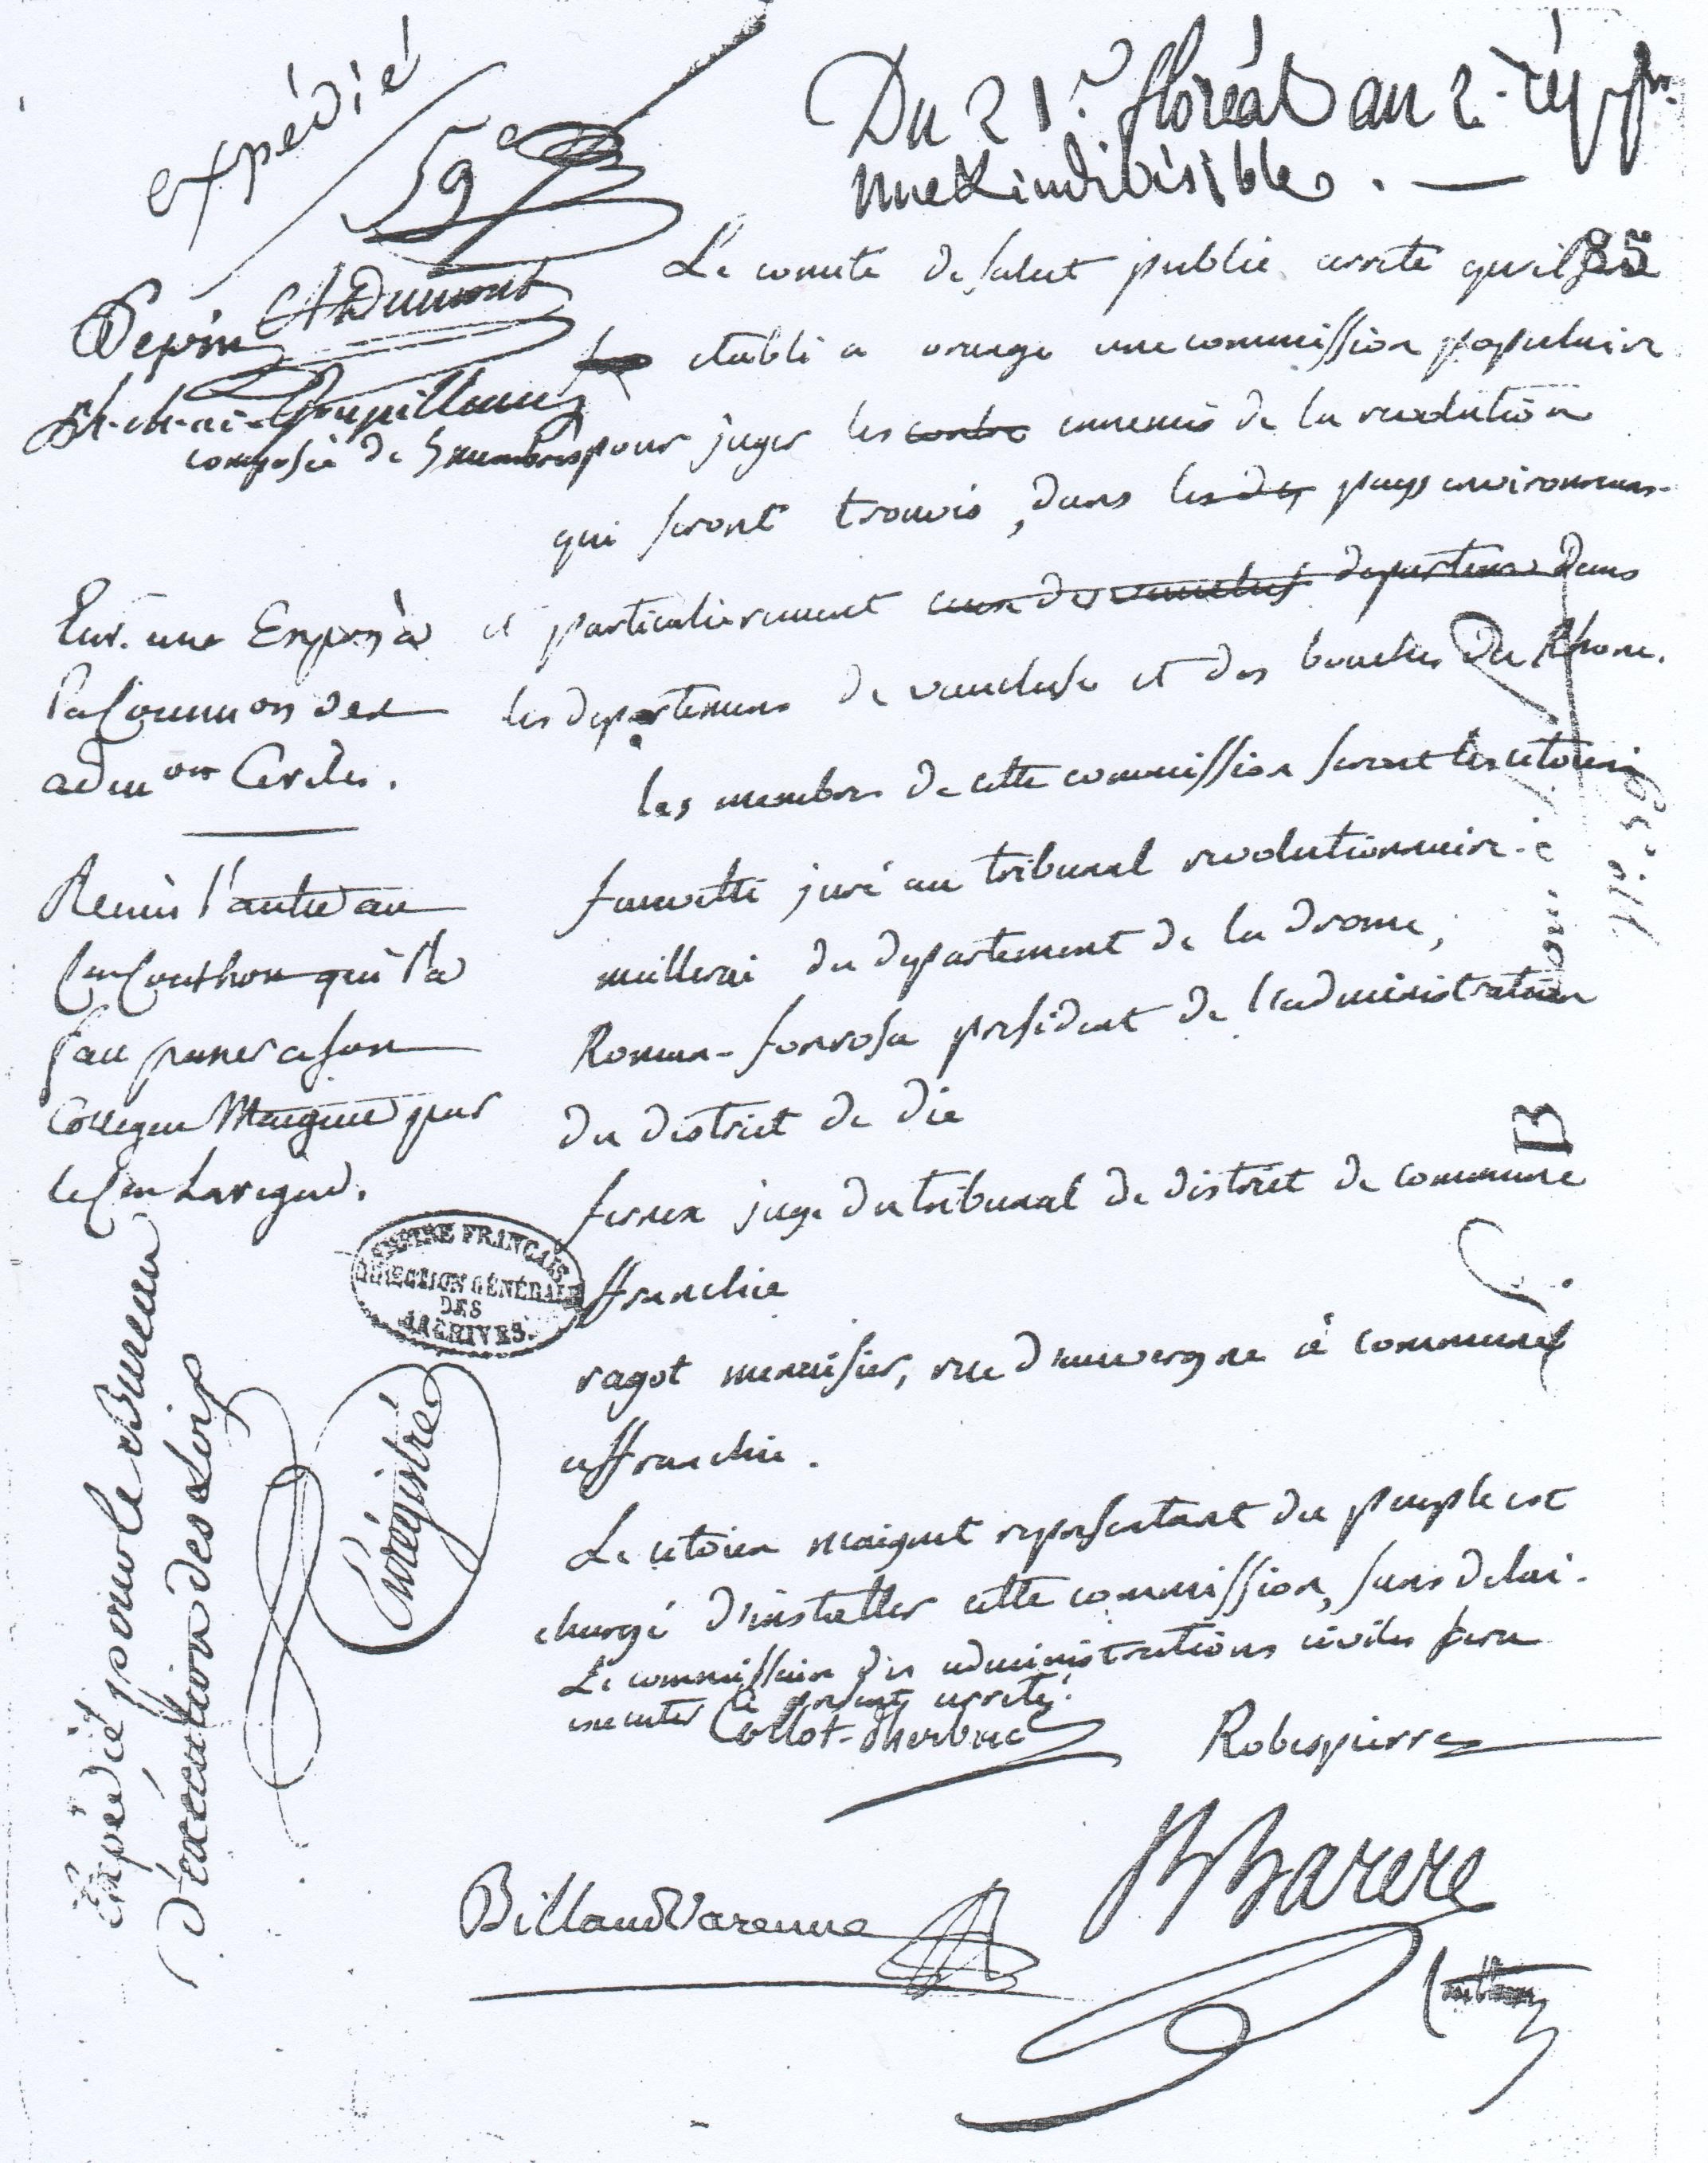 expédié
59e
Du 21. floréal an 2. rep fr.
une & indivisible. —
85
Le comite de salut public arrete qu'il sera
etabli a orange une commission populaire
composée de 5 membres pour juger les contre ennemis de la revolution
qui seront trouvés, dans les des pays environnans
et particulierement ceux des vaucluse departemens dans
les departemens de vaucluse et des bouches du Rhone.
les membres de cette commission seront les citoiens
fauvetti juré au tribunal revolutionnaire
meillerai du departement de la drome,
Roman-fonrosa president de l'administration
du district de die
fernex juge du tribunal de district de commune
affranchie
ragot menuisier, rue d'auvergne à commune
affranchie.
Le citoien maignet representant du peuple est
chargé d'installer cette commission, sans delai.
Le commissaire des administrations civiles fera
executer le present arreté.
Collot-d'herbois
Robespierre
Billaud Varenne
B Barere
Couthon
ADumont
Env. une Expon à
la Common des
admons Civiles.
Remis l'autre au
Cen Couthon qui l'a
fait passer a son
Collegue Maignet par
le Cen Lavigne.
CENTRE FRANÇAIS
DIRECTION GÉNÉRALE
DES
ARCHIVES.
Enrégistré
Expédié pour le Bureau
d'exécution des Loix
B